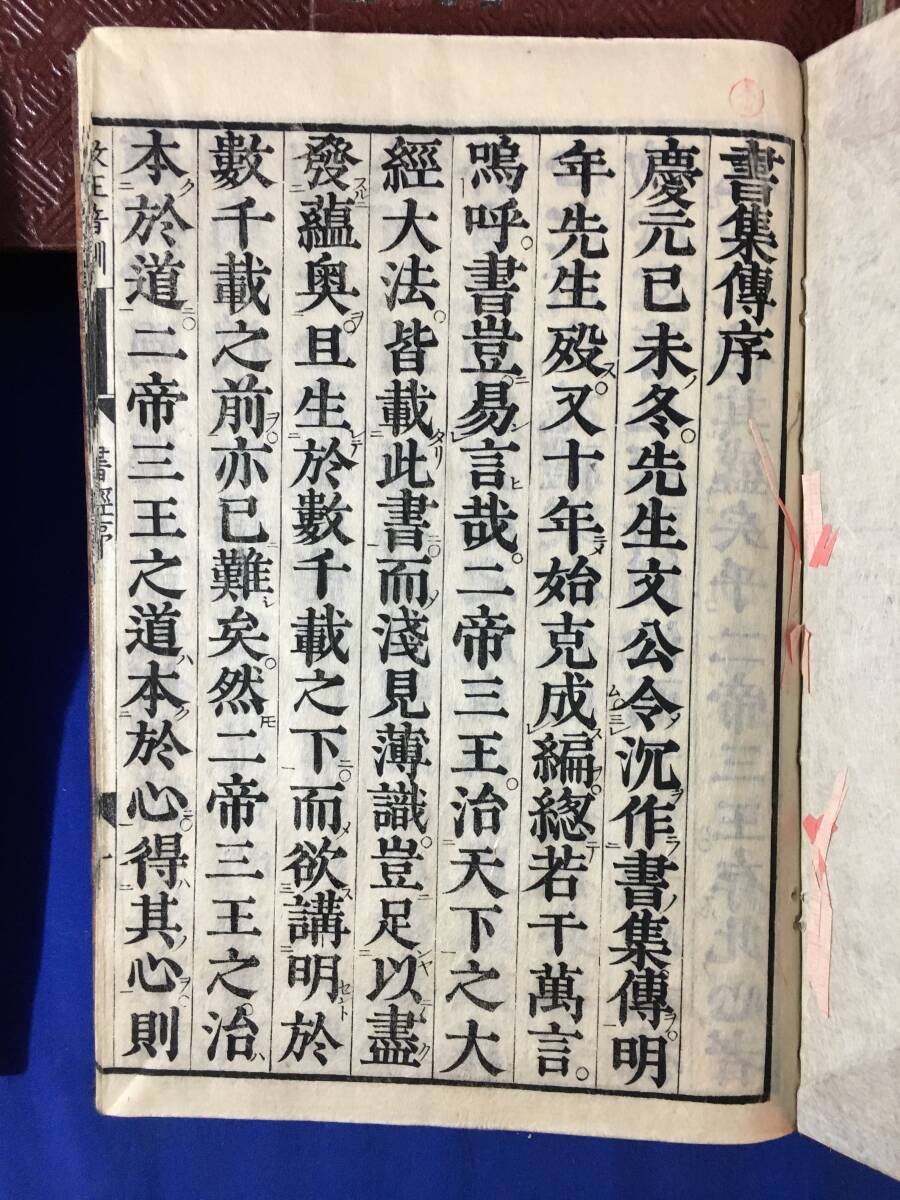 書集傳序
慶元已未冬先生文公令沉作書集傳明
年先生歿又十年始克成編總若干萬言
嗚呼書豈易言哉二帝三王治天下之大
經大法皆載此書而淺見薄識豈足以盡
發蘊奧且生於數千載之下而欲講明於
數千載之前亦已難矣然二帝三王之治
本於道二帝三王之道本於心得其心則
改正音訓
書經序
一